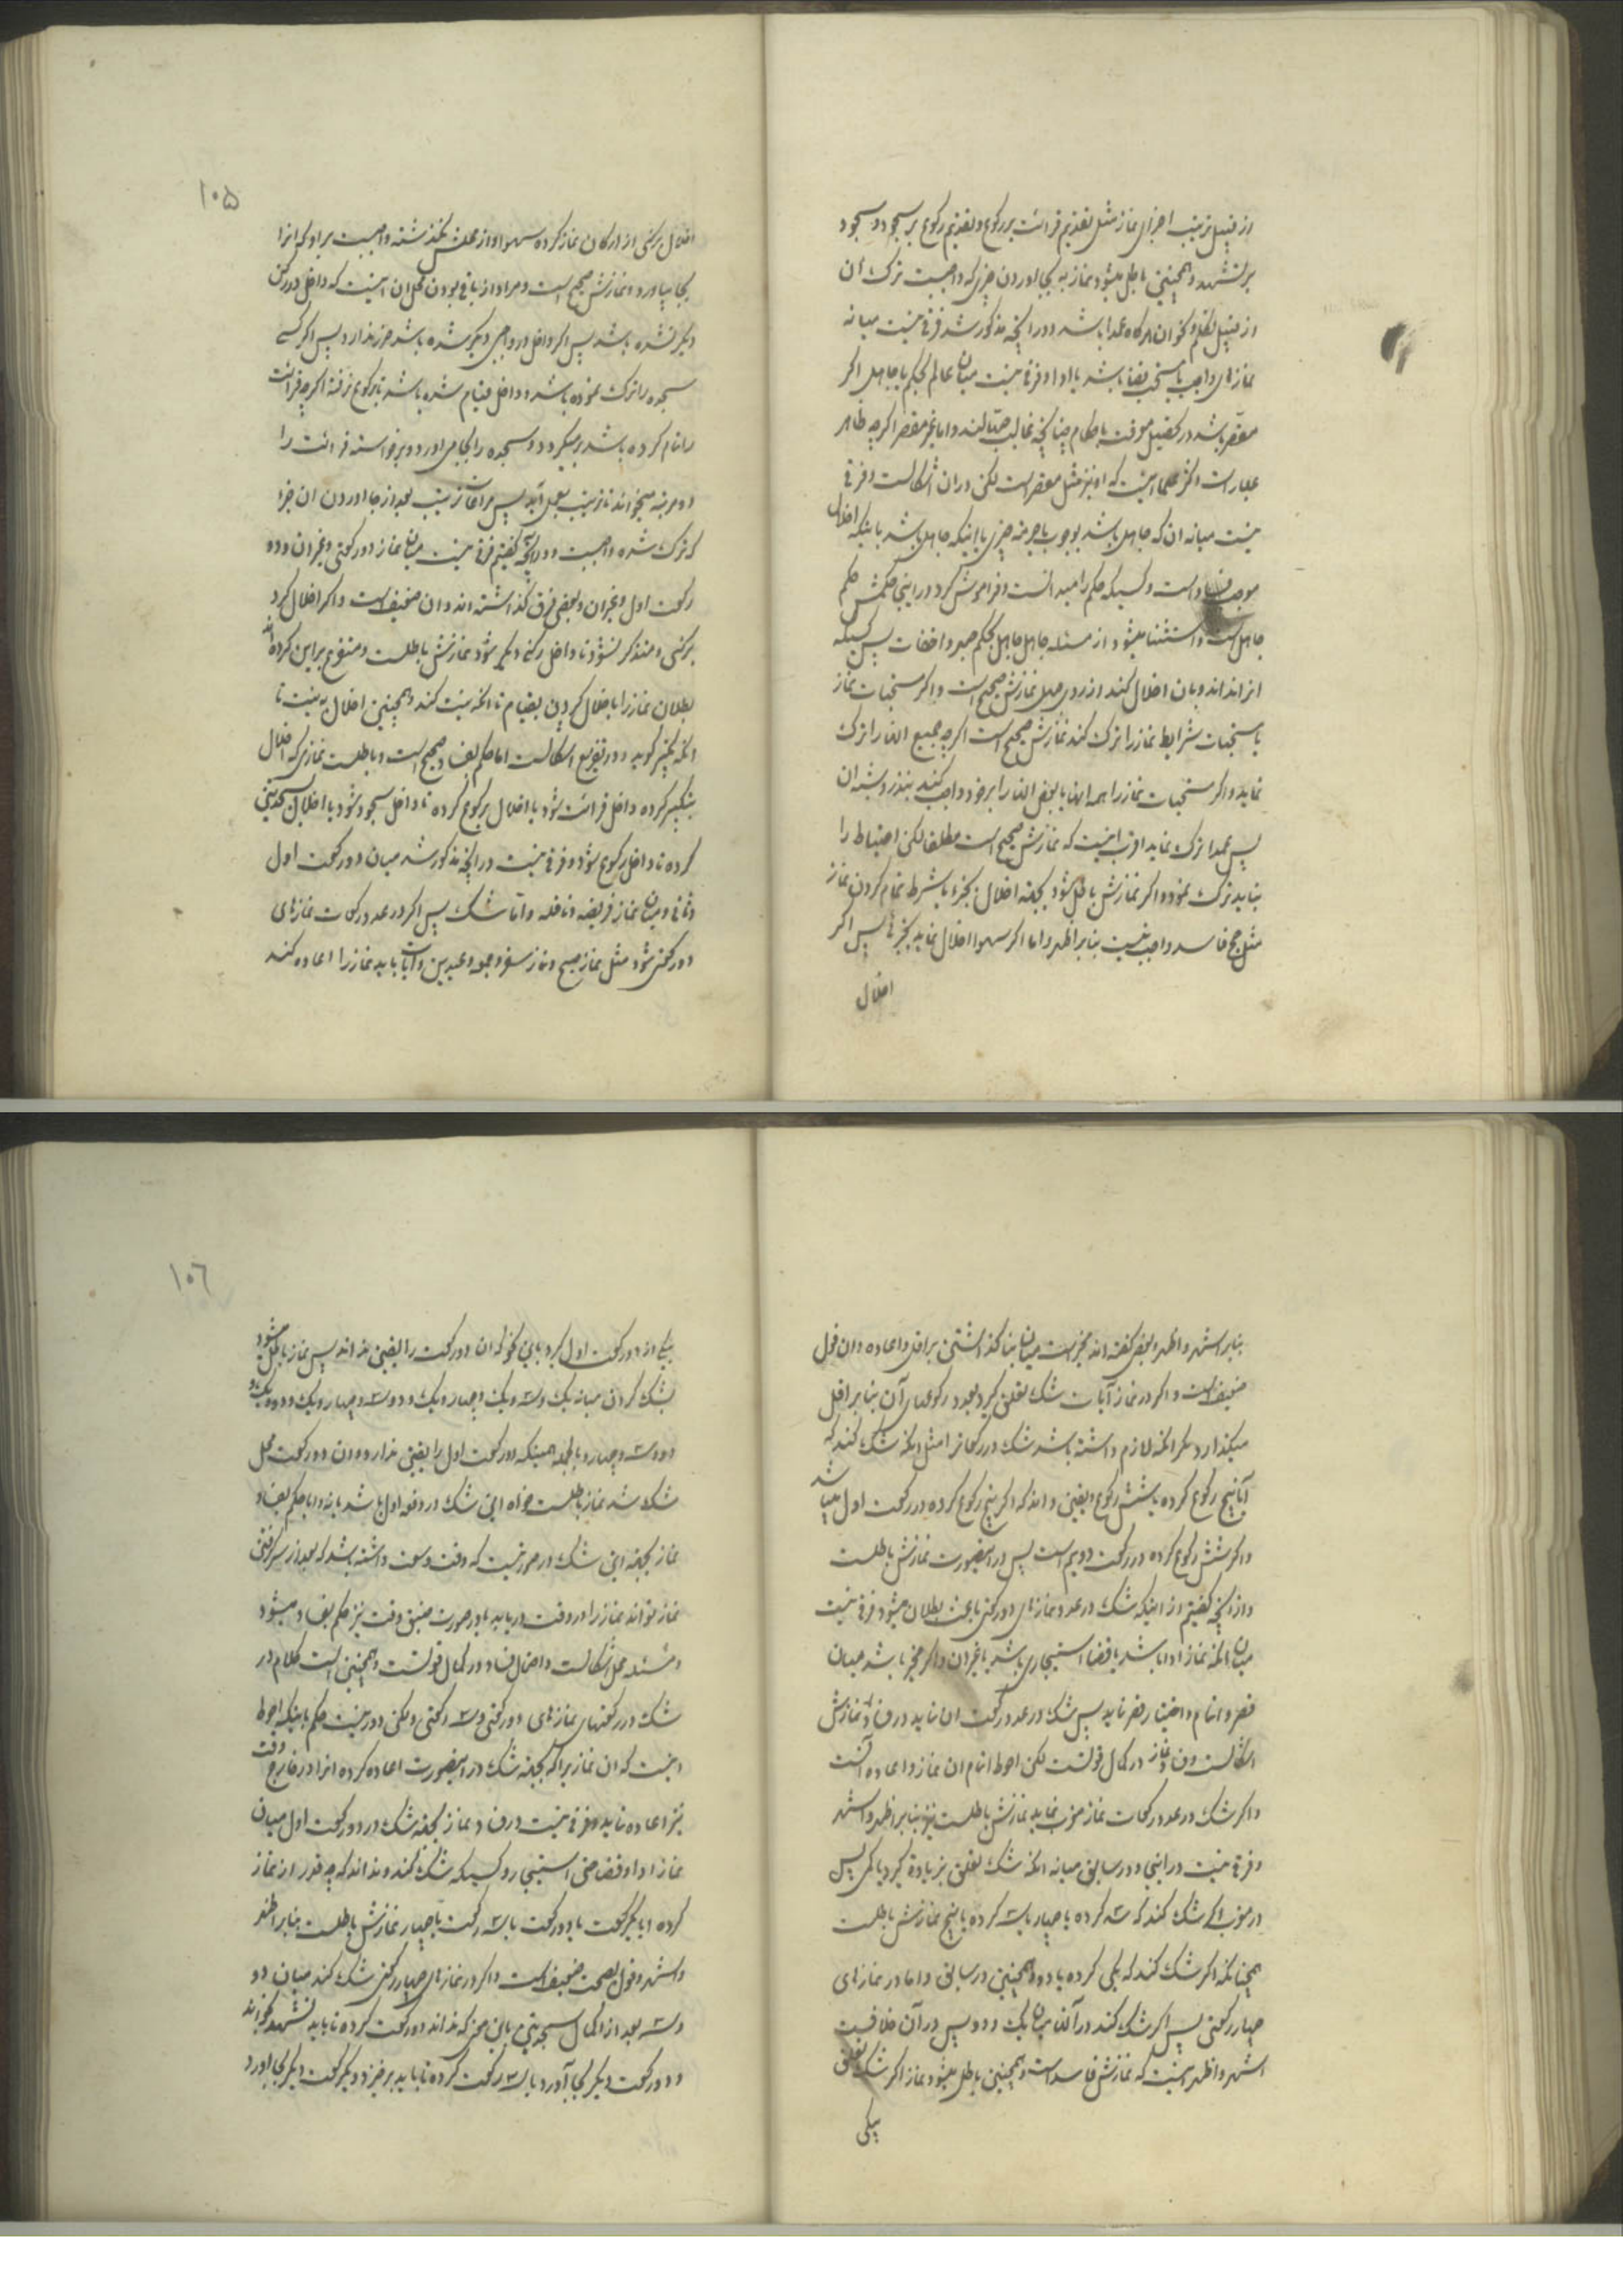 از قبیل ترتیب اجزای نماز مثل تقدیم قرائت بر رکوع و تقدیم رکوع بر سجود و سجود
بر تشهد و همچنین باطل میشود نماز به بجا آوردن چیزی که واجبست ترک آن
از قبیل تکلم و نحو ان هرگاه عمدا باشد و در آنچه مذکور شد فرقی نیست میانه
نمازهای واجب یا مستحب قضا باشد یا ادا و فرقی نیست میان عالم بحکم یا جاهل اگر
مقصر باشد در تحصیل معرفت باحکام چنانچه غالب جهّالند و اما غیر مقصر اگر چه ظاهر
عبارات اکثر علما اینست که او نیز مثل مقصر است لکن در ان اشکالست و فرقی
نیست میانه ان که جاهل باشد بوجوب یا حرمة چیزی یا اینکه جاهل باشد باینکه اخلال
موجب فساد است و کسیکه حکم را میدانست و فراموش کرد در اینجا حکمش حکم
جاهل است و استثنا میشود از مسئله جاهل جاهل بحکم جهر و اخفات پس کسیکه
انرا نداند و بان اخلال کند از روی جهل نمازش صحیح است و اگر مستحبات نماز
یا مستحبات شرایط نماز را ترک کند نمازش صحیح است اگر چه جمیع انها را ترک
نماید و اگر مستحبات نماز را همه انها یا بعض انها را بر خود واجب کند بنذر و شبه ان
پس عمدا ترک نماید اقرب اینست که نمازش صحیح است مطلقا لکن احتیاط را
نباید ترک نمود و اگر نمازش باطل شود بجهة اخلال بجزء یا شرط تمام کردن نماز
مثل حج فاسد واجب نیست بنابر اظهر و اما اگر سهوا اخلال نماید بجزئی پس اگر
اخلال
۱۰۵
اخلال برکنی از ارکان نماز کرده سهوا و از محلش نگذشته واجبست بر او که انرا
بجا بیاورد و نمازش صحیح است و مراد از باقی بودن محل ان اینست که داخل در رکن
دیگر نشده باشد پس اگر داخل در واجبی دیگر شده باشد ضرر ندارد پس اگر کسی
سجده را ترک نموده باشد و داخل قیام شده باشد تا برکوع نرفته اگر چه قرائت
را تمام کرده باشد بر میگردد و سجده را بجا می اورد و برخواسته قرائت را
دو مرتبه میخواند تا ترتیب بعمل آید پس مراعات ترتیب بعد از بجا اوردن ان جزء
که ترک شده واجبست و در آنچه گفتیم فرقی نیست میان نماز دو رکعتی و غیر ان و دو
رکعت اول و غیر ان و بعضی فرق گذاشته اند و ان ضعیف است و اگر اخلال کرد
برکنی و متذکر نشود تا داخل رکنی دیگر شود نمازش باطلست و متفرع بر این کرده اند
بطلان نماز را باخلال کردن بقیام تا انکه نیت کند و همچنین اخلال به نیت تا
انکه تکبیر گوید و در تفریع اشکالست اما حکم بفساد صحیح است و باطلست نمازی که اخلال
بتکبیر کرده داخل قرائت شود یا اخلال برکوع کرده تا داخل سجود شود یا اخلال بسجدتین
کرده تا داخل رکوع شود و فرقی نیست در آنچه مذکور شد میان دو رکعت اول
و ثانی و میان نماز فریضه و نافله و امّا شک پس اگر در عدد رکعات نمازهای
دو رکعتی شود مثل نماز صبح و نماز سفر و جمعه و عیدین و آیات باید نماز را اعاده کند
بنابر اشهر و اظهر و بعض گفته اند مخیر است میان بنا گذاشتن بر اقل و اعاده و ان قول
ضعیف است و اگر در نماز آیات شک تعلق گیرد بعدد رکوعهای آن بنا بر اقل
میگذارد مگر انکه لازم داشته باشد شک در رکعات را مثل انکه شک کند که
آیا پنج رکوع کرده یا شش رکوع و یقین داند که اگر پنج رکوع کرده در رکعت اول میباشد
و اگر شش رکوع کرده در رکعت دویم است پس در اینصورت نمازش باطلست
و از آنچه گفتیم از اینکه شک در عدد نمازهای دو رکعتی باعث بطلان میشود فرقی نیست
میان انکه نماز ادا باشد یا قضا استیجاری باشد یا غیر ان و اگر مخیر باشد میان
قصر و اتمام و اختیار قصر نماید پس شک در عدد رکعت ان نماید در فساد نمازش
اشکالست و فساد نماز در کمال قوتست لکن احوط اتمام ان نماز و اعاده آنست
و اگر شک در عدد رکعات نماز مغرب نماید نمازش باطلست نیز بنابر اظهر و اشهر
و فرقی نیست در اینجا و در سابق میانه انکه شک تعلق بزیادة گیرد یا کمی پس
در مغرب اگر شک کند که سه کرده یا چهار یا سه کرده یا پنج نمازش باطلست
همچنانکه اگر شک کند که یکی کرده یا دو و همچنین در سابق و اما در نمازهای
چهار رکعتی پس اگر شک کند در آنها میان یک و دو پس در آن خلافیست
اشهر و اظهر اینست که نمازش فاسد است و همچنین باطل میشود نماز اگر شک تعلق
بیکی
۱۰۶
بیکی از دو رکعت اول گیرد باین نحو که ان دو رکعت را یقین نداند پس نماز باطل میشود
بشک کردن میانه یک و سه و یک و چهار و یک و دو و سه و چهار و یک و دو و یک و
دو و سه و چهار و بالجمله همینکه دو رکعت اول را یقین ندارد و ان دو رکعت محل
شک شد نماز باطلست خواه این شک در دفعه اول باشد یا نه و اما حکم بفساد
نماز بجهة این شک در صورتیست که وقت وسعت داشته باشد که بعد از سر گرفتن
نماز تواند نماز را در وقت دریابد یا در صورت ضیق وقت نیز حکم بفساد میشود
مسئله محل اشکالست و احتمال فساد در کمال قوتست و همچنین است کلام در
شک در رکعتهای نمازهای دو رکعتی و سه رکعتی و لکن دور نیست حکم باینکه احوط
اینست که ان نماز را که بجهة شک در اینصورت اعاده کرده انرا در خارج وقت
نیز اعاده نماید و فرقی نیست در فساد نماز بجهة شک در دو رکعت اول میان
نماز ادا و قضا حتی استیجار و کسیکه شک کند و نداند که چه قدر از نماز
کرده ایا یکرکعت یا دو رکعت یا سه رکعت یا چهار نمازش باطلست بنابر اظهر
و اشهر و قول بصحت ضعیف است و اگر در نمازهای چهار رکعتی شک کند میان دو
و سه بعد از اکمال سجدتین باین نحو که نداند دو رکعت کرده تا باید تشهد بخواند
و دو رکعت دیگر بجا آورد یا سه رکعت کرده تا باید برخیزد و یکرکعت دیگر بجا اورد